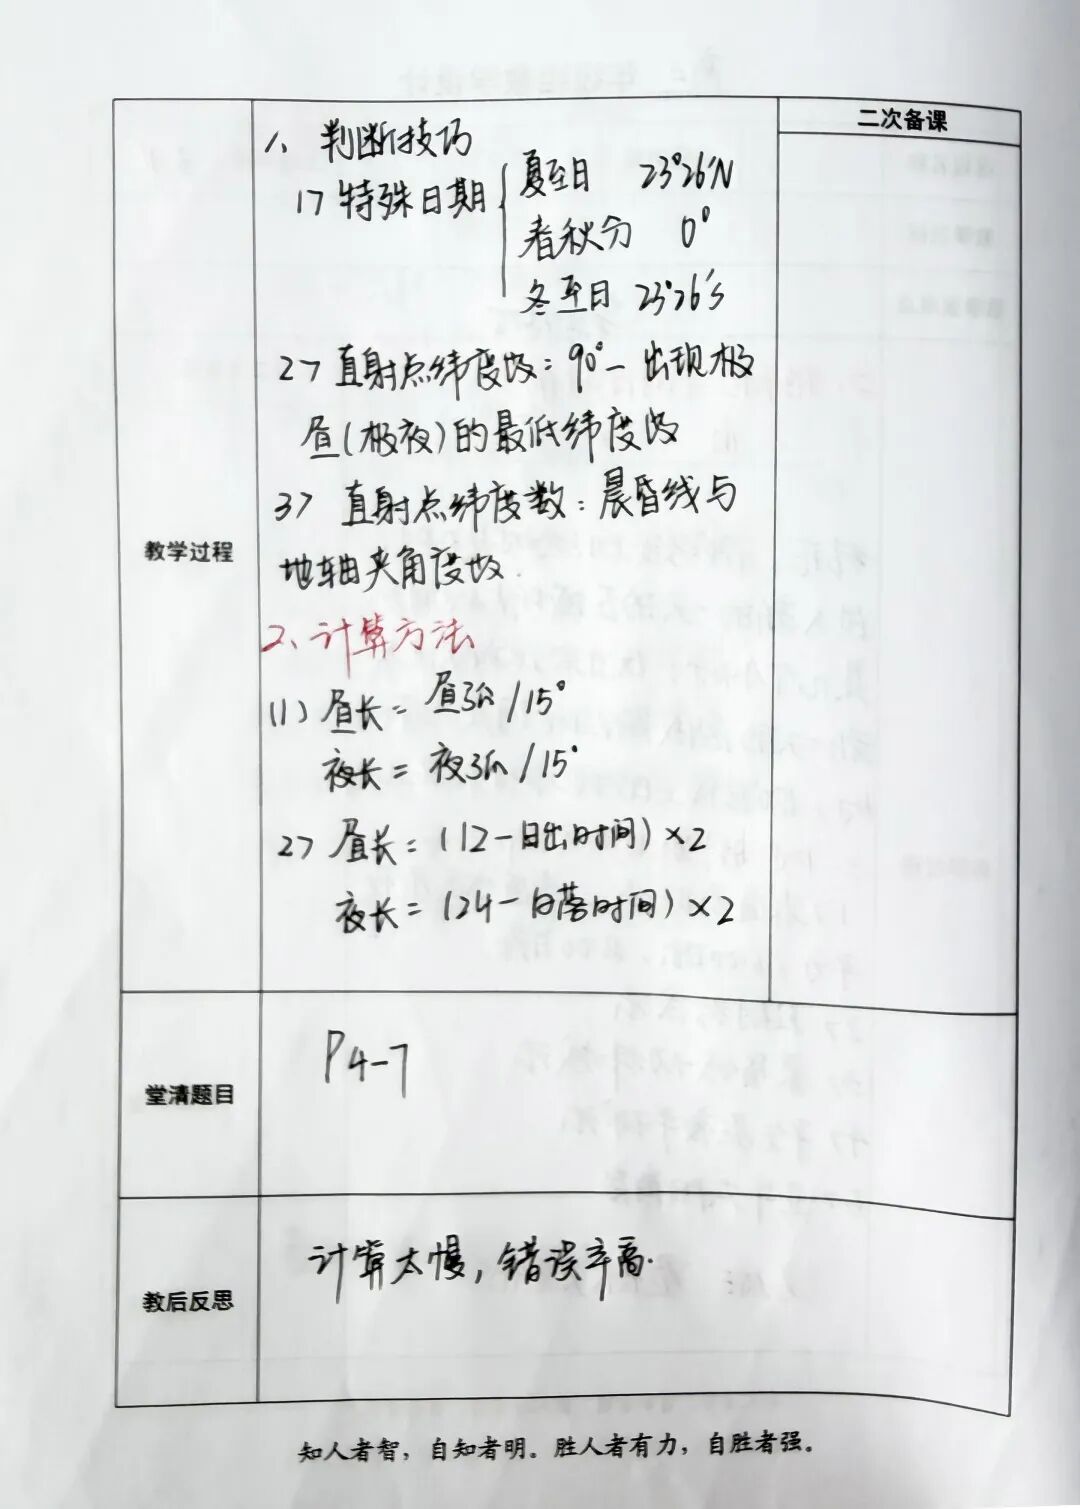 二次备课
教学过程
1、判断技巧
1> 特殊日期
夏至日 23°26′N
春秋分 0°
冬至日 23°26′S
2> 直射点纬度数：90°－出现极
昼（极夜）的最低纬度数
3> 直射点纬度数：晨昏线与
地轴夹角度数.
2、计算方法
(1) 昼长＝昼弧/15°
夜长＝夜弧/15°
2> 昼长＝(12－日出时间)×2
夜长＝(24－日落时间)×2
堂清题目
P4-7
教后反思
计算太慢，错误率高.
知人者智，自知者明。胜人者有力，自胜者强。